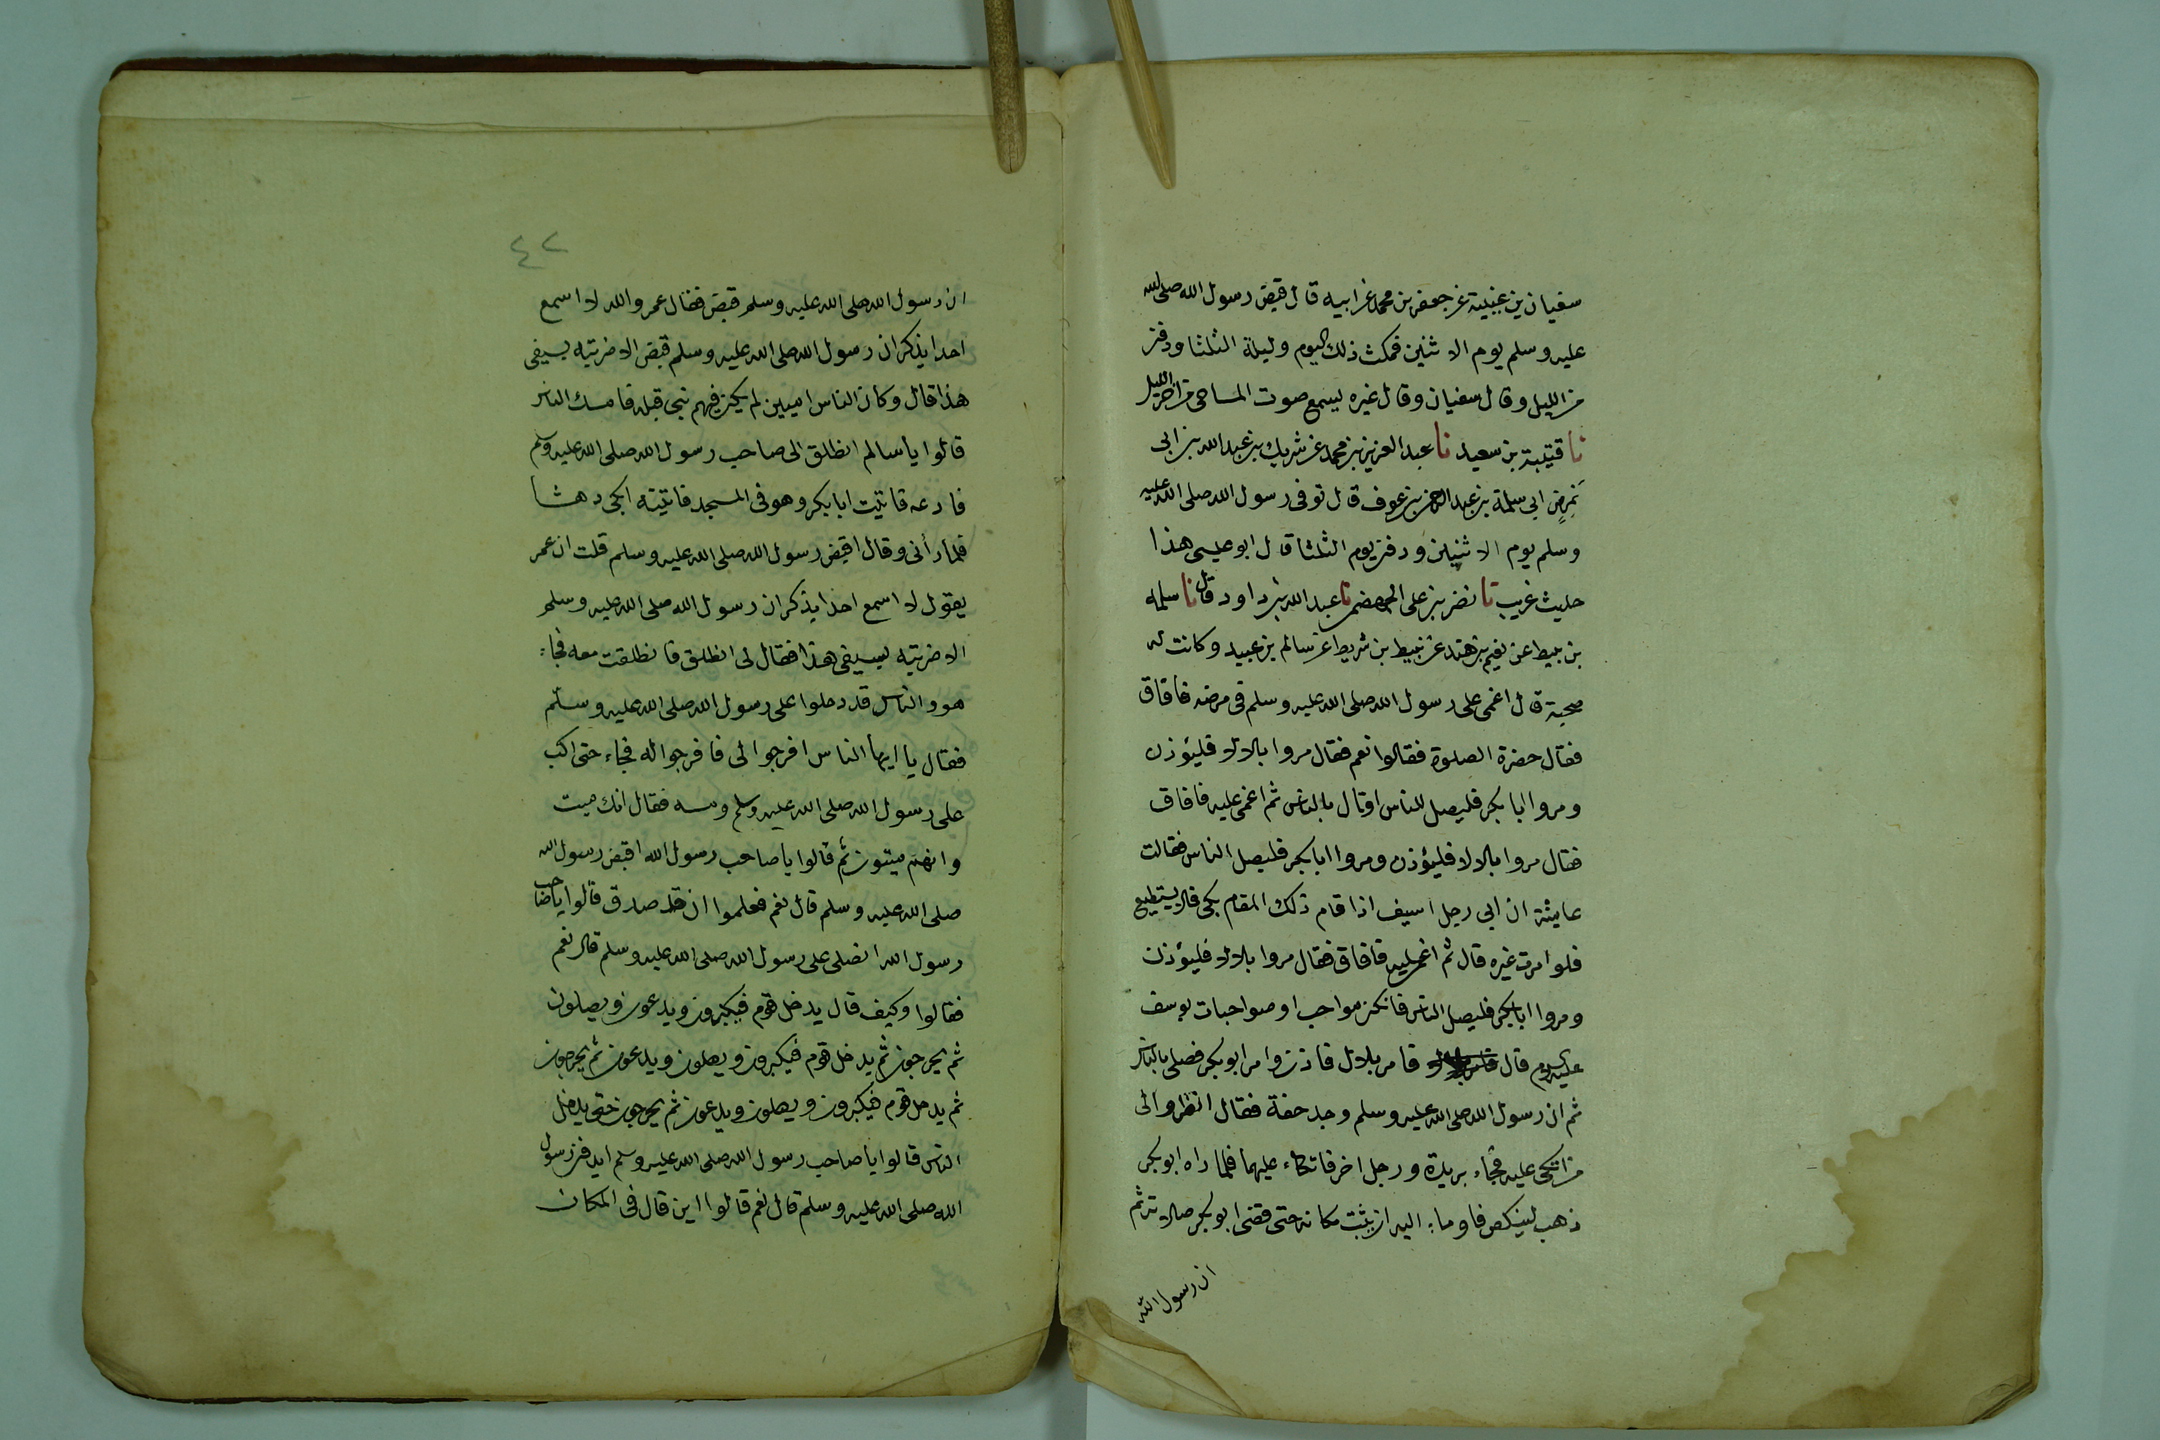 سفيان بن عيينة عن جعفر بن محمد عن ابيه قال قبض رسول الله صلى الله
عليه وسلم يوم الاثنين فمكث ذلك اليوم وليلة الثلثا ودفن
من الليل وقال سفيان وقال غيره يسمع صوت المساحى من اخر الليل
نا قتيبة بن سعيد نا عبد العزيز بن محمد عن شريك بن عبد الله بن ابى
نمر عن ابى سلمة بن عبد الرحمن بن عوف قال توفى رسول الله صلى الله عليه
وسلم يوم الاثنين ودفن يوم الثلثا قال ابو عيسى هذا
حديث غريب نا نصر بن على الجهضمى نا عبد الله بن داود قال نا سلمه
بن نبيط عن نعيم بن هند عن نبيط بن شريط عن سالم بن عبيد وكانت له
صحبة قال اغمى على رسول الله صلى الله عليه وسلم فى مرضه فافاق
فقال حضرة الصلوة فقالوا نعم فقال مروا بلالا فليؤذن
ومروا ابا بكر فليصل للناس او قال بالناس ثم اغمى عليه فافاق
فقال مروا بلالا فليؤذن ومروا ابا بكر فليصل الناس فقالت
عايشة ان ابى رجل اسيف اذا قام ذلك المقام بكى فلا يستطيع
فلو امرت غيره قال ثم اغمى عليه فافاق فقال مروا بلالا فليؤذن
ومروا ابا بكر فليصل الناس فانكن صواحب او صواحبات يوسف
عليه السلام قال فامر بلال فاذن وامر ابو بكر فصلى بالناس
ثم ان رسول الله صلى الله عليه وسلم وجد خفة فقال انظروا الى
من اتكى عليه فجاء بريدة ورجل اخر فاتكاء عليهما فلما راه ابو بكر
ذهب لينكص فاوماء اليه ان يثبت مكانه حتى قضى ابو بكر صلاته ثم
ان رسول الله
٤٢
ان رسول الله صلى الله عليه وسلم قبض فقال عمر والله لا اسمع
احدا يذكر ان رسول الله صلى الله عليه وسلم قبض الا ضربته بسيفى
هذا قال وكان الناس اميين لم يكن فيهم نبى قبله فامسك الناس
قالوا يا سالم انطلق الى صاحب رسول الله صلى الله عليه وسلم
فادعه فاتيت ابا بكر وهو فى المسجد فاتيته ابكى دهشا
فلما رأنى وقال اقبض رسول الله صلى الله عليه وسلم قلت ان عمر
يقول لا اسمع احدا يذكر ان رسول الله صلى الله عليه وسلم
الا ضربته بسيفى هذا فقال لى انطلق فانطلقت معه فجاء
هو والناس قد دخلوا على رسول الله صلى الله عليه وسلم
فقال يا ايها الناس افرجوا لى فافرجوا له فجاء حتى اكب
على رسول الله صلى الله عليه وسلم ومسه فقال انك ميت
وانهم ميتون ثم قالوا يا صاحب رسول الله اقبض رسول الله
صلى الله عليه وسلم قال نعم فعلموا ان قد صدق قالوا يا صاحب
رسول الله انصلى على رسول الله صلى الله عليه وسلم قال نعم
فقالوا وكيف قال يدخل قوم فيكبرون ويدعون ويصلون
ثم يخرجون ثم يدخل قوم فيكبرون ويصلون ويدعون ثم يخرجون
ثم يدخل قوم فيكبرون ويصلون ويدعون ثم يخرجون حتى يدخل
الناس قالوا يا صاحب رسول الله صلى الله عليه وسلم ايدفن رسول
الله صلى الله عليه وسلم قال نعم قالوا اين قال فى المكان